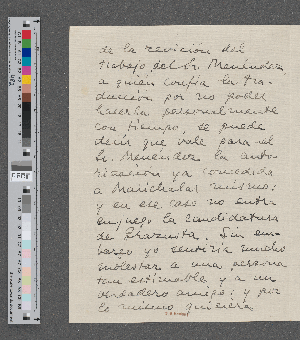 de la revición del
trabajo del Sr. Menéndez,
a quién confía la tra-
ducción por no poder
hacerla personalmente
con tiempo, se puede
decir que vale para el
Sr. Menéndez la auto-
rización ya concedida
a Marichalar mismo;
y en ese caso no entra
en juego la candidatura
de Brazuita. Sin em-
bargo yo sentiría mucho
molestar a una persona
tan estimable y a un
verdadero amigo; y por
lo mismo quisiera